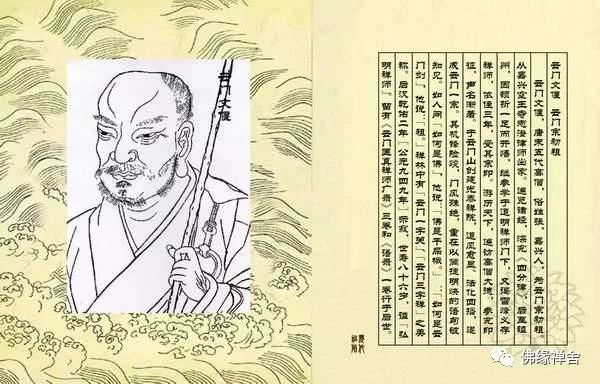 云门文偃
云门文偃 云门宗初祖
云门文偃，唐末五代高僧，俗姓张，嘉兴人，为云门宗初祖
从嘉兴空王寺志澄律师出家，遍览诸经，深究《四分律》。后至睦
州，因顿折一足而开悟。继参学于道明禅师门下，又谒雪峰义存
禅师，依住三年，受其宗印。游历天下，遍访高僧大德，参究印
证，声名渐著。于云门山创建光泰禅院，道风愈显，法化四播，遂
成云门一宗。其机锋险峻，门风殊绝，重在以简捷明快的语句破
知见。如人问：「如何是佛」，他说：「佛是干屎橛」；「如何是云
门剑」，他说：「祖」。禅林中有「云门一字关」、「云门三字禅」之美
称。后汉乾佑二年（公元九四九年）示寂，世寿八十六岁，谥「弘
明禅师」留有《云门匡真禅师广录》三卷和《语录》一卷行于后世。
佛缘禅舍